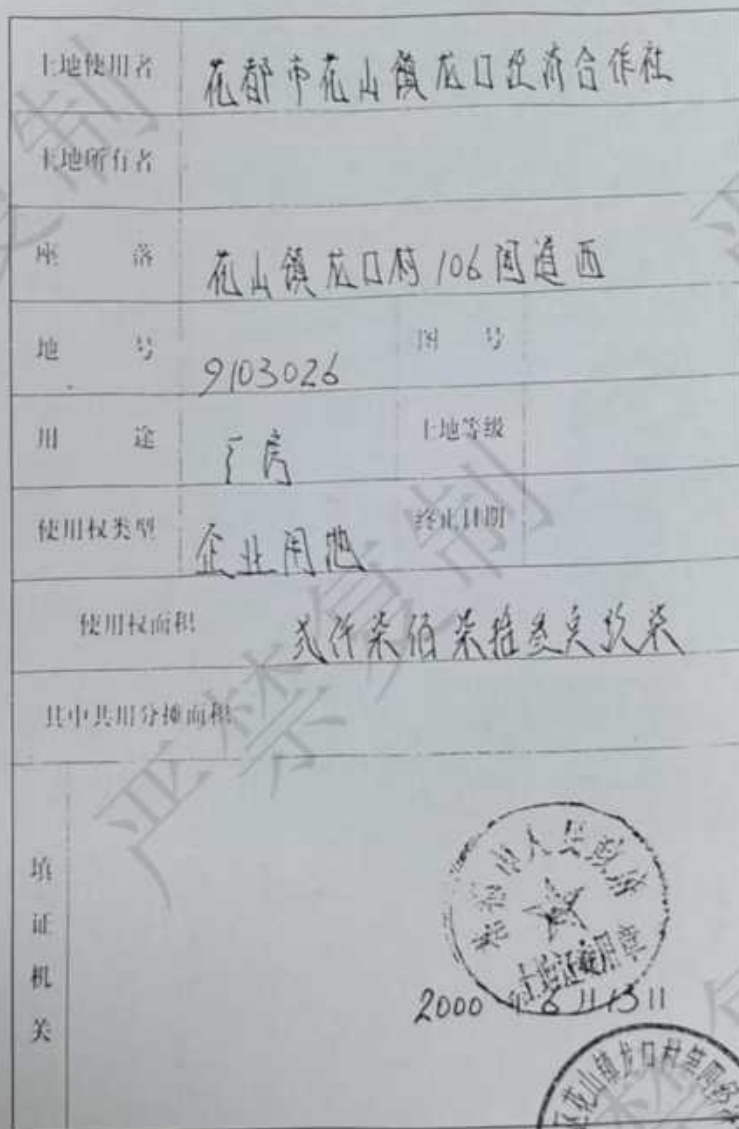 土地使用者 花都市花山镇龙口经济合作社
土地所有者
座落 花山镇龙口村106国道西
地号 9103026 图号
用途 厂房 土地等级
使用权类型 企业用地 终止日期
使用权面积 弍仟柒佰柒拾叁点玖柒
其中共用分摊面积
填证机关
花都市人民政府
土地证专用章
2000 年 6 月 13 日
花山镇龙口村第四经
严禁复制